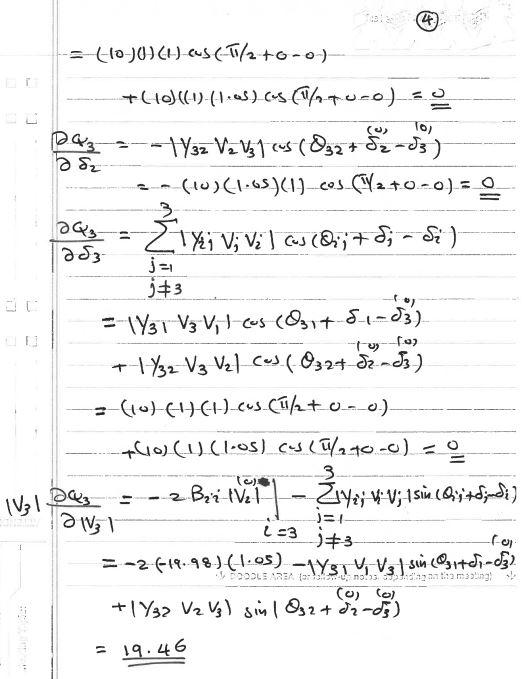 4
= (-10)(1)(1) cos(π/2+0-0)
+(10)((1)(1.05) cos(π/2+0-0) = 0
∂Q3/∂δ2 = -|Y32 V2 V3| cos(θ32 + δ2(0) - δ3(0))
= -(10)(1.05)(1) cos(π/2+0-0) = 0
∂Q3/∂δ3 = 3 Σ j=1 j≠3 |Yij Vj Vi| cos(θij + δj - δi)
= |Y31 V3 V1| cos(θ31 + δ1 - δ3(0))
+ |Y32 V3 V2| cos(θ32 + δ2(0) - δ3(0))
= (10)(1)(1) cos(π/2 + 0 - 0)
+(10)(1)(1.05) cos(π/2+0-0) = 0
|V3| ∂Q3/∂|V3| = -2 Bii |Vi(0)| | i=3 - 3 Σ j=1 j≠3 |Yij Vi Vj| sin(θij+δj-δi)
= -2(-19.98)(1.05) - |Y31 V1 V3| sin(θ31+δ1-δ3(0))
DOODLE AREA (or follow-up notes, depending on the meeting)
+ |Y32 V2 V3| sin(θ32 + δ2(0) - δ3(0))
= 19.46